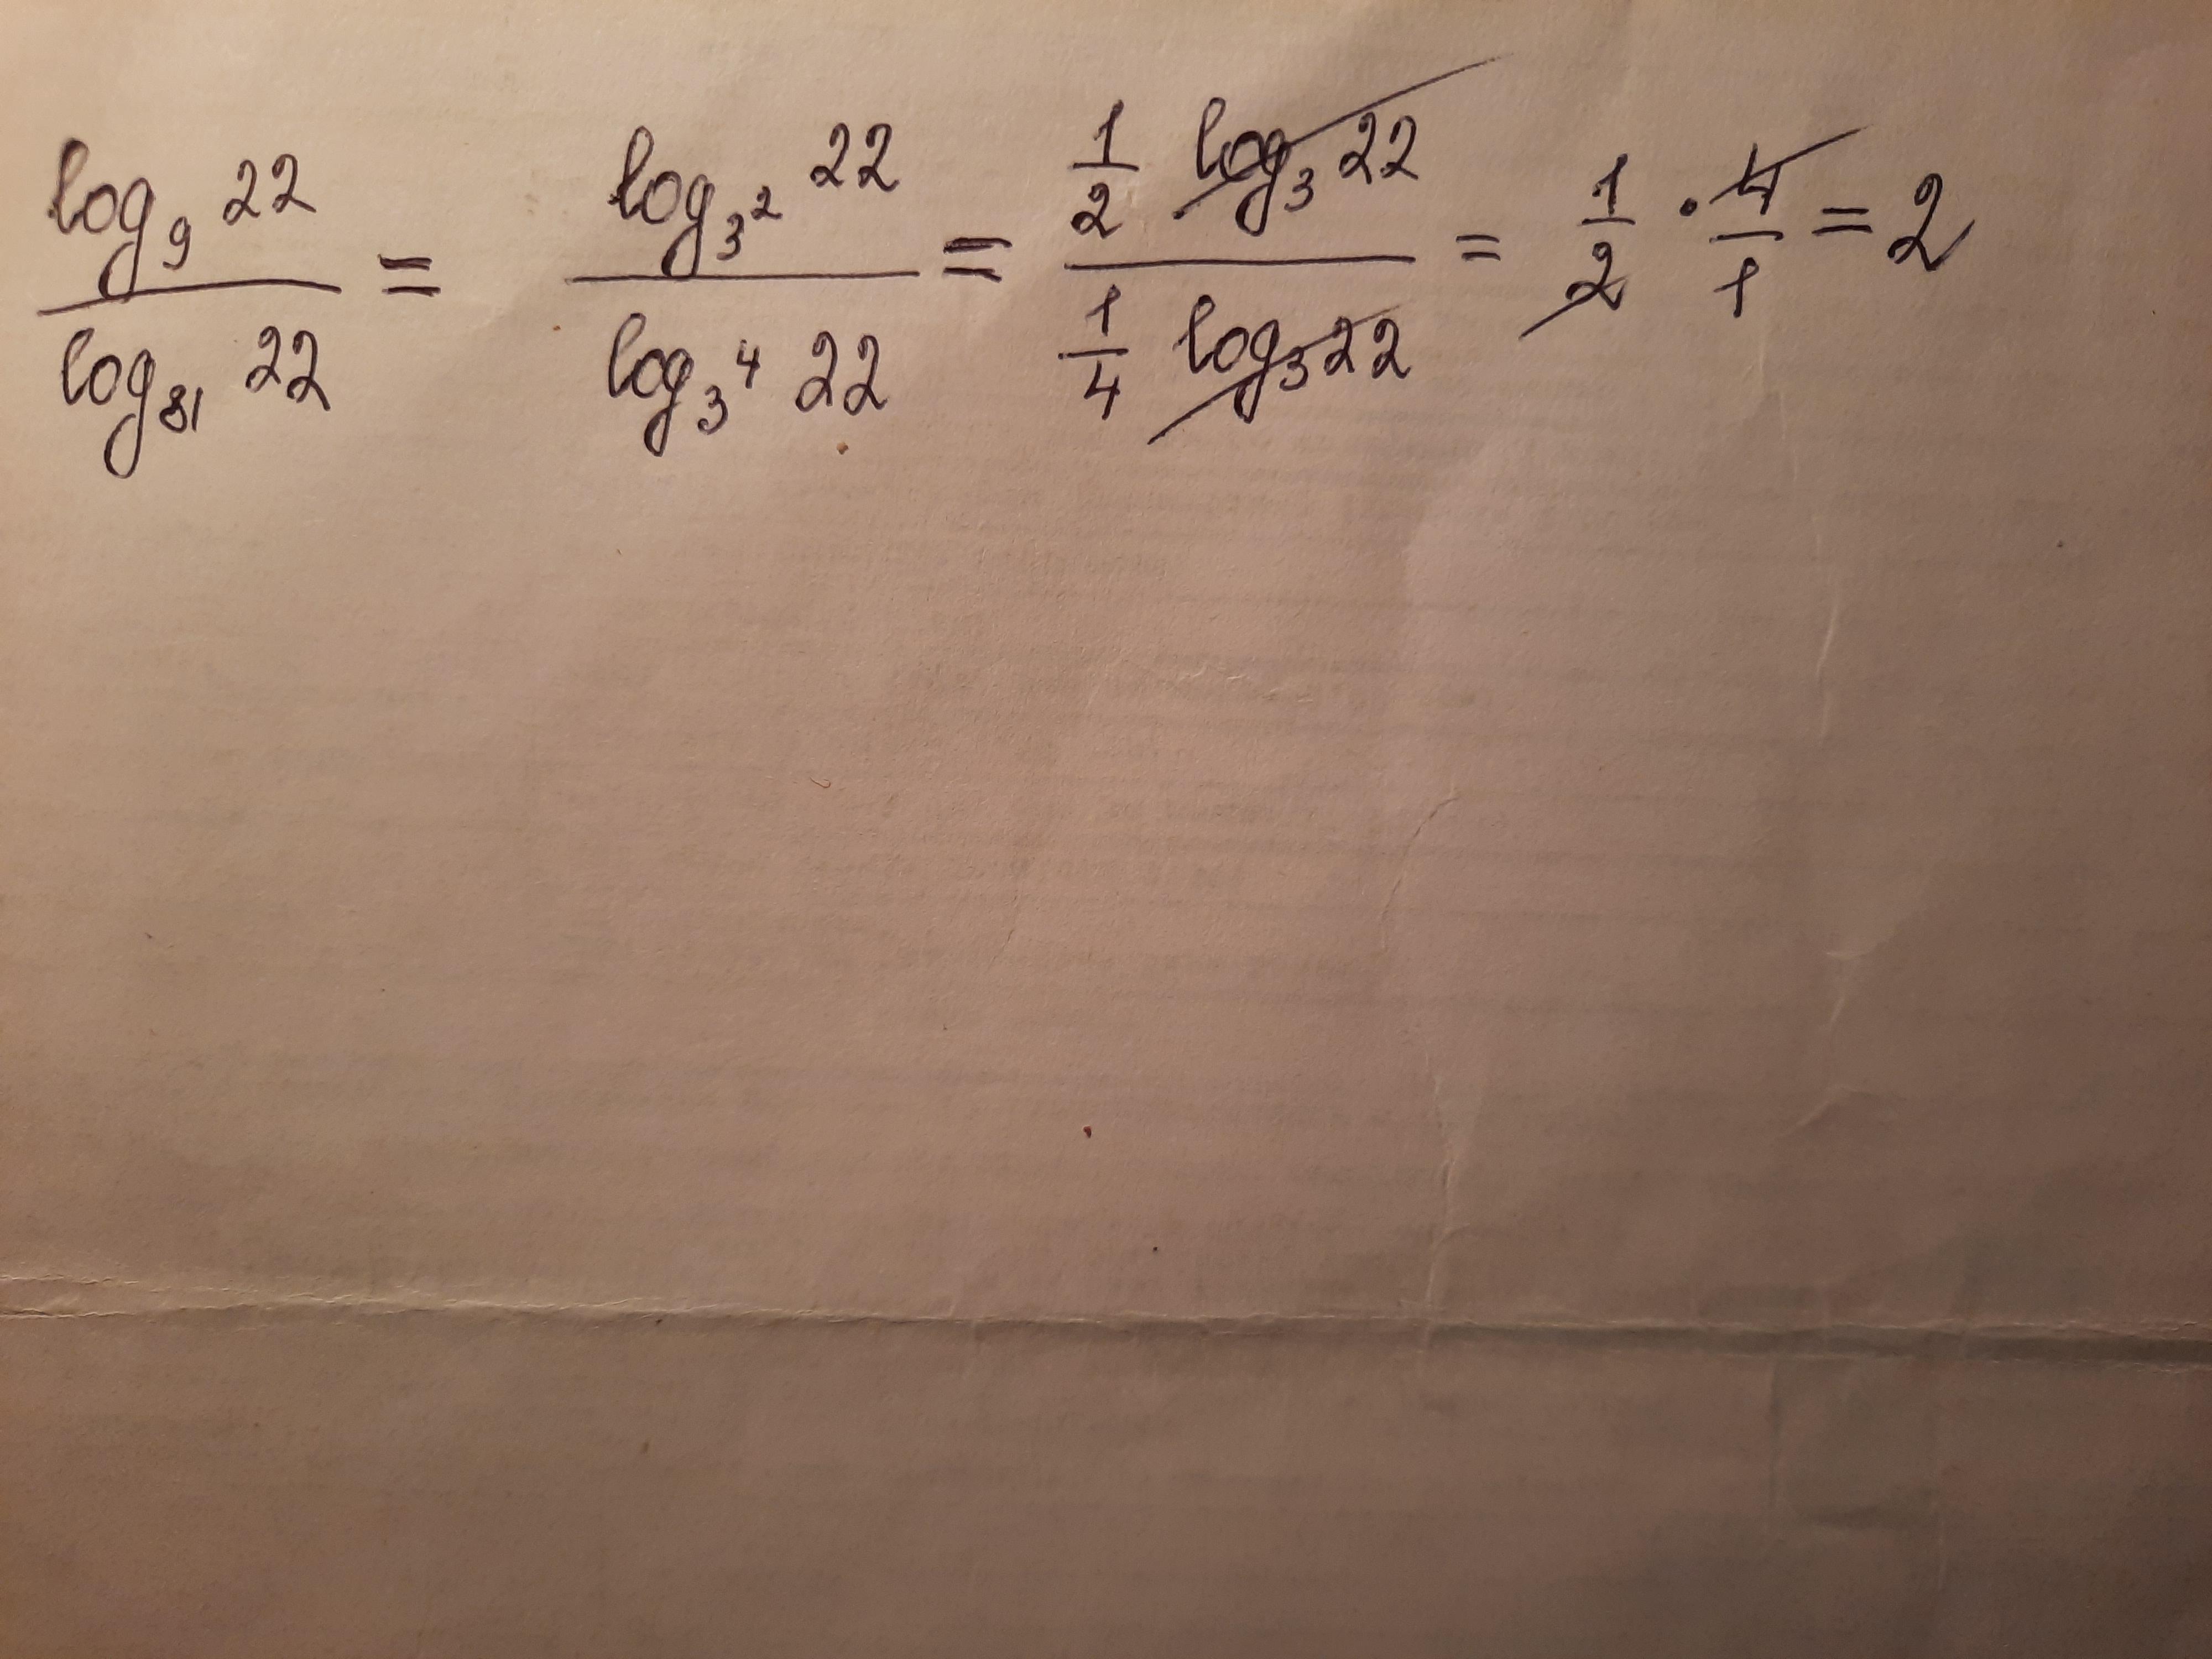 log₉ 22 / log₈₁ 22 = log₃² 22 / log₃⁴ 22 = 1/2 log₃ 22 / 1/4 log₃ 22 = 1/2 · 4/1 = 2